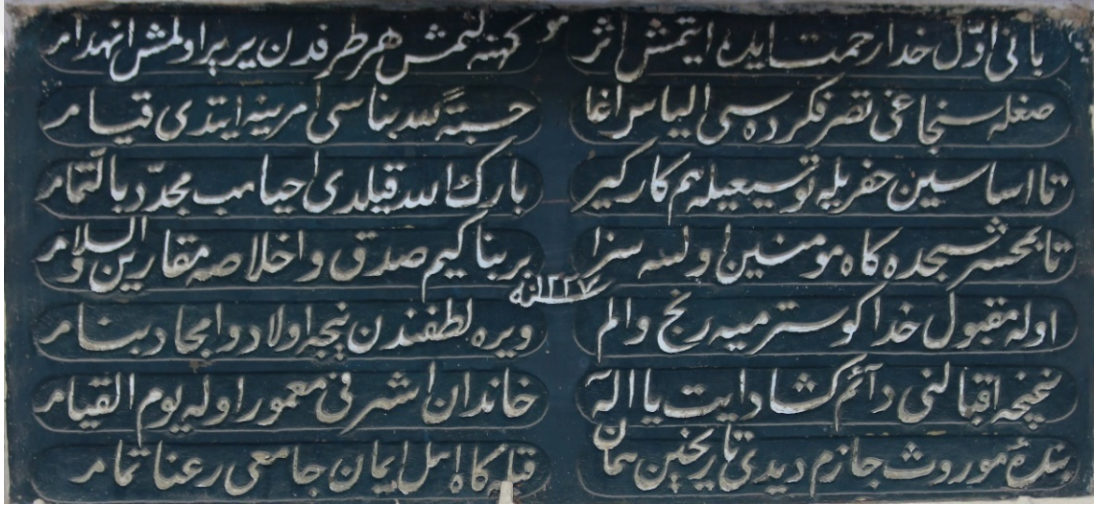 بانی اول خدا رحمت ایده ایتمش اثر
کهنه لنمش هر طرفدن یر یر اولمش انهدام
صغله سنجاغی تصرفکرده سی الیاس اغا
حسبة لله بناسی امرینه ایتدی قیام
تا اساسین حفریله توسیعیله هم کارگیر
بارك الله قیلدی احیا هب مجدد بالتمام
تا بمحشر سجده کاه مومنین اولسه سزا
بر بنا کیم صدق و اخلاصه مقارین والسلام
سنه ١٢٢٧
اوله مقبول خدا کوسترمیه رنج و الم
ویره لطفندن نیجه اولاد و امجاد بنام
نیجه اقبالنی دآئم کشاد ایت یا اله
خاندان اشرفی معمور اوله یوم القیام
بندۀ موروث جازم دیدی تاریخین همان
قبله کاه اهل ایمان جامعی رعنا تمام